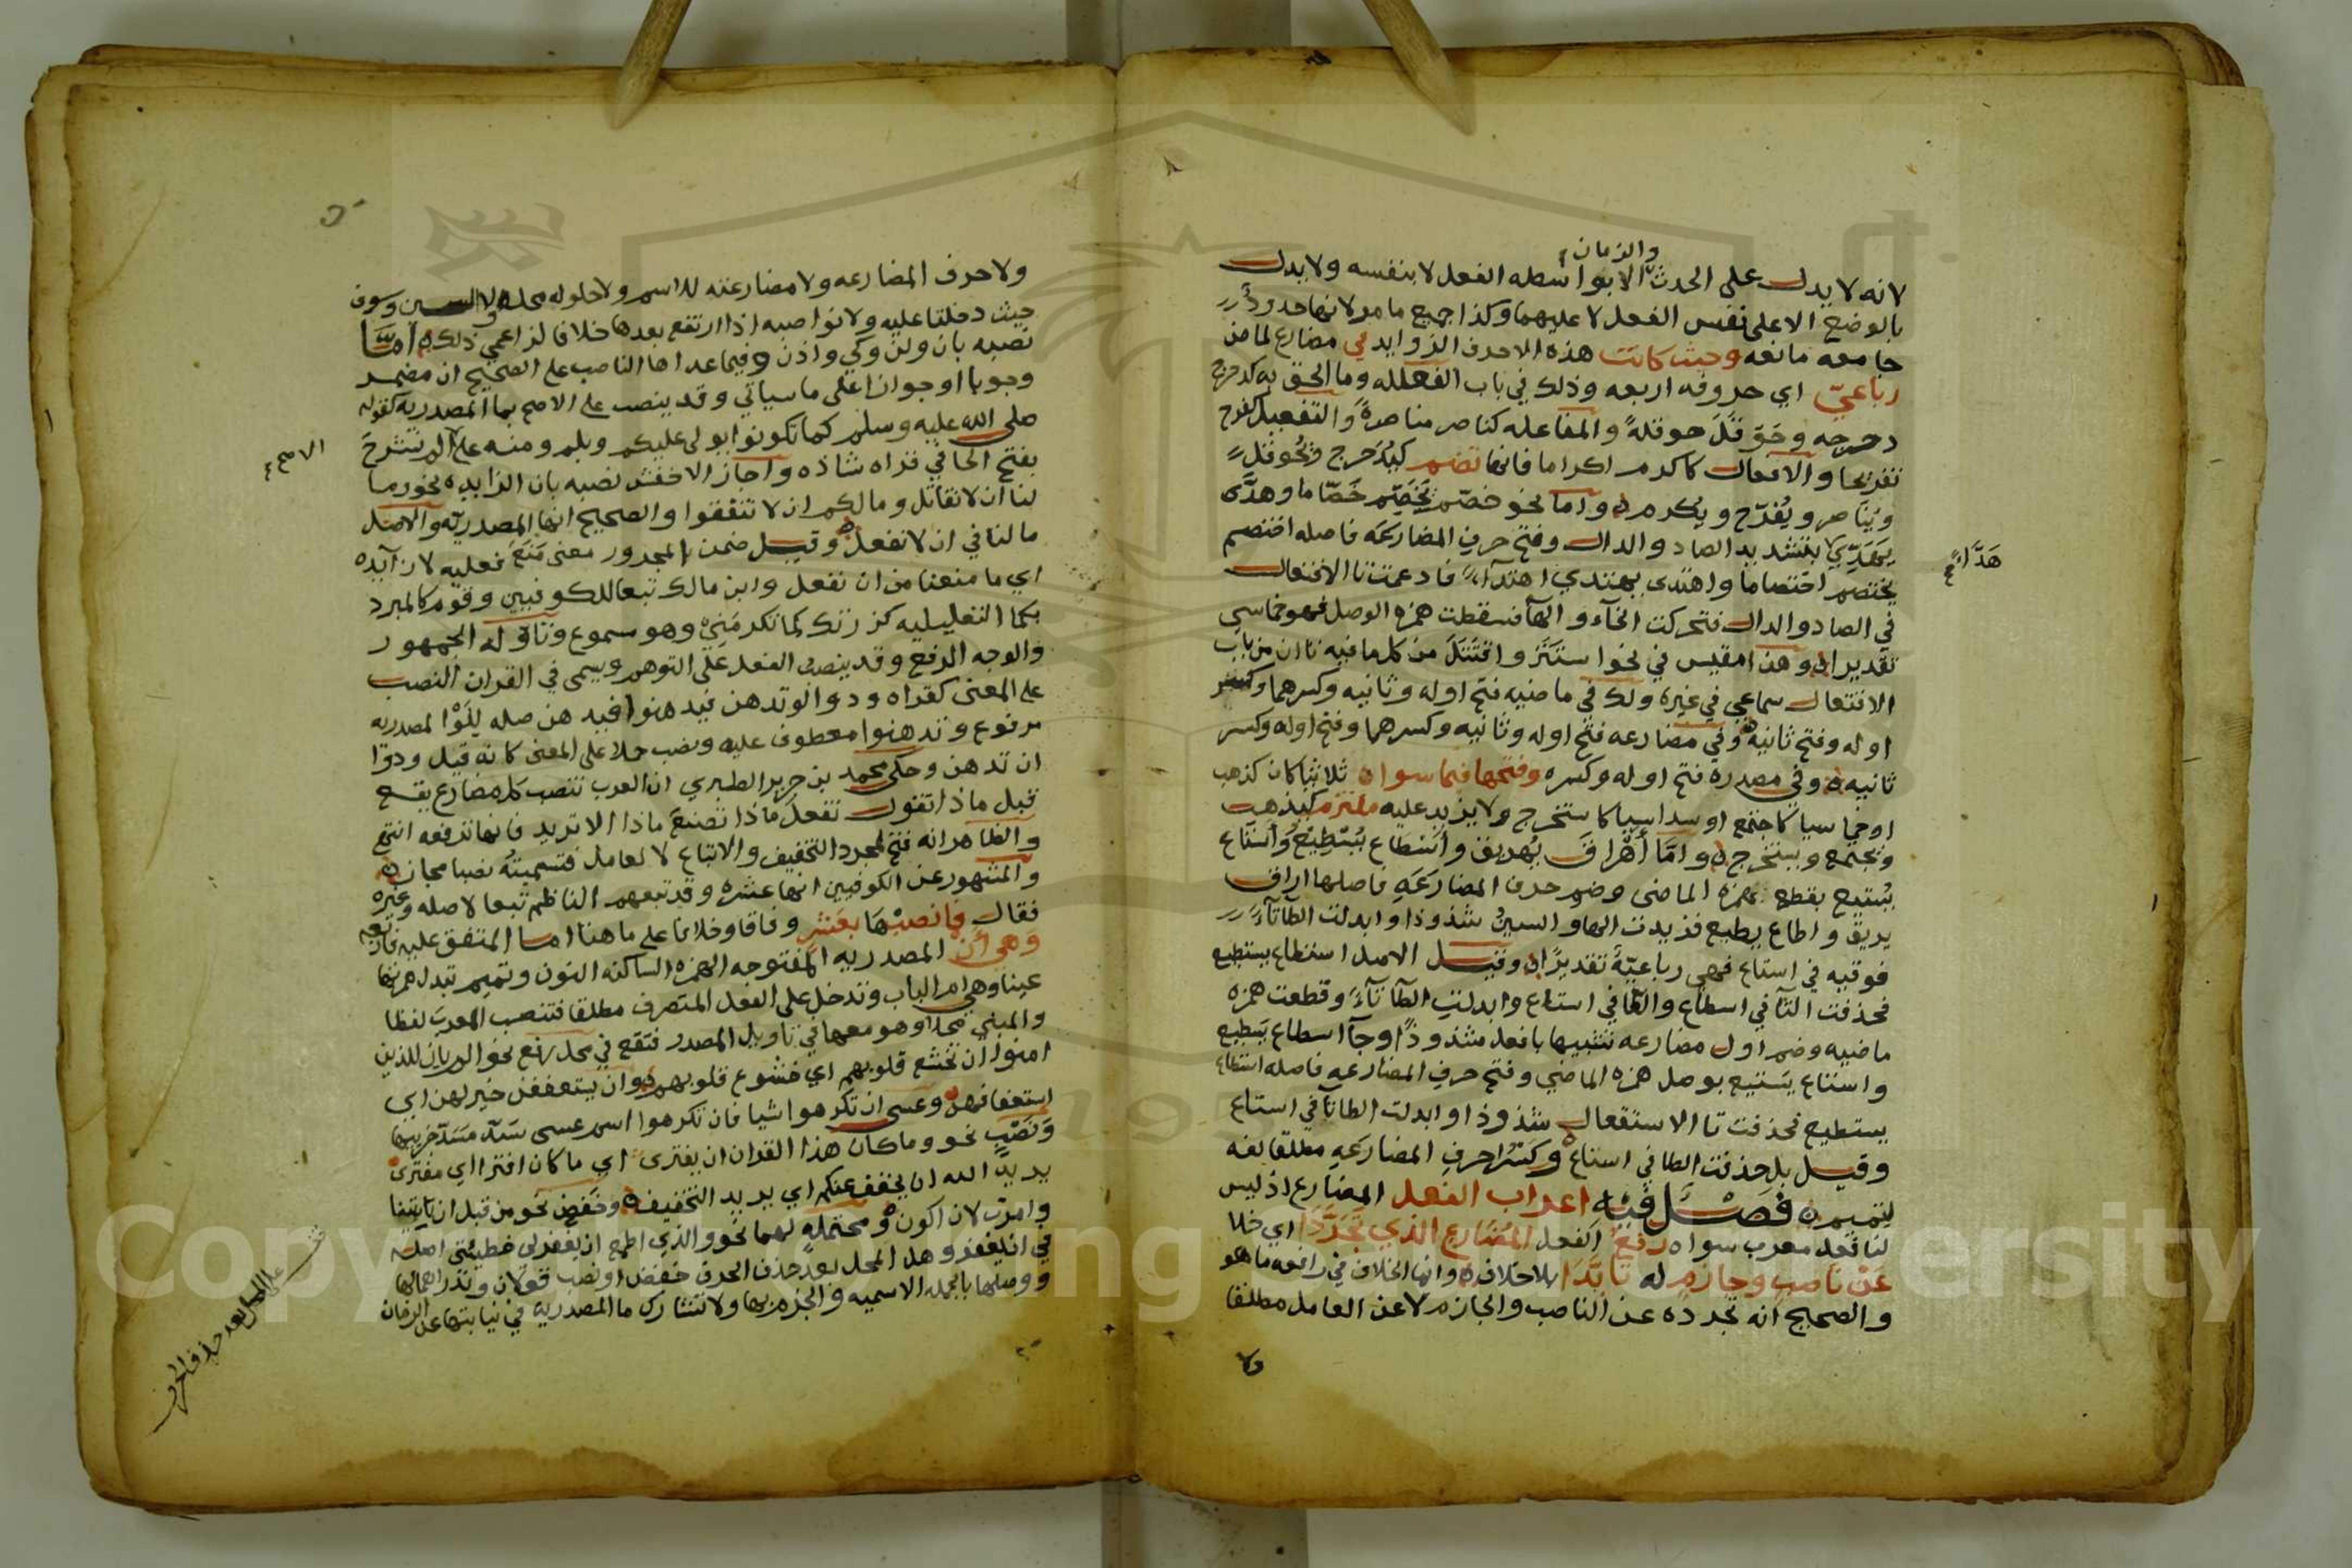 والزمان
لانه لا يدل على الحدث الا بواسطه الفعل لا بنفسه ولا يدل
بالوضع الا على نفس الفعل لا عليهما وكذا جميع ما مر لانها حدود
جامعه مانعه وحيث كانت هذه الاحرف الزوايد في مضارع لماض
رباعيّ اي حروفه اربعه وذلك في باب الفعلله وما الحق به كدحرج
دحرجه وحَوقَلَ حوقلةً والمفاعله كناصر مناصرةً والتفعيل كفرح
تفريحا والافعال كاكرم اكراما فانها تضم كيُدَحرج ويُحوقلُ
ويُنَاصر ويُفَرّح ويُكرم واما نحو خصّم يَخَصِّم خَصّاما وهدَّى
هَدَّاءً صح
يَهَدِّي بتشديد الصاد والدال وفتح حرف المضارعَه فاصله اختصم
يختصم اختصاما واهتدى يهتدي اهتدآءً فادغمت تا الافتعال
في الصاد والدال فتحركت الخآء والهآ فسقطت همزه الوصل فهو خماسي
تقديرا وهذا مقيس في نحو استَتَرَ واقتَتَلَ من كل ما فيه تاان من باب
الافتعال سماعي في غيره ولك في ماضيه فتح اوله وثانيه وكسرهما وكسر
اوله وفتح ثانيه وفي مضارعه فتح اوله وثانيه وكسرهما وفتح اوله وكسر
ثانيه وفي مصدره فتح اوله وكسره وفتحها فيما سواه ثلاثيا كان كذهب
او خماسيا كاجتمع او سداسيا كاستخرج ولا يزيد عليه ملتزم كيذهب
ويجتمع ويستخرج واما أهْرَاقَ يُهريق وأَسْطَاع يُسْطِيع وأستاع
يُستيع بقطع همزه الماضي وضم حرف المضارَعَه فاصلها اراق
يريق واطاع يطيع فزيدت الها والسينُ شذوذا وابدلت الطآ تآءً
فوقيه في استاع فهي رباعيّةٌ تقديرًا وقيل الاصل استطاع يستطيع
فحذفت التآ في اسطاع والطآ في استاع وابدلت الطآ تآءً وقطعت همزه
ماضيه وضم اول مضارعه تشبيها بافعل شذوذًا وجآ اسطاع يَسطيع
واستاع يَستيع بوصل همزه الماضي وفتح حرف المضارعه فاصله استطاع
يستطيع فحذفت تا الاستفعال شذوذا وابدلت الطا تآ في استاع
وقيل بل حذفت الطا في استاع وكَسْرُ احرف المضارَعَه مطلقا لغه
لتميم فَصْلٌ فيه اعراب الفعل المضارع اذ ليس
لنا فعل معرب سواه رفعُ الفعل المُضارع الذي تَجَرَّدَا اي خلا
عَنْ نَاصِب وجازم له تأبَّدَا بلا خلاف وانما الخلاف في رافعه ما هو
والصحيح انه تجرده عن الناصب والجازم لا عن العامل مطلقا
ولا
ولا حرف المضارعه ولا مضارعته للاسم ولا حلوله محله ولا السين وسوف
حيث دخلتا عليه ولا نواصبه اذا ارتفع بعدها خلافا لزاعمي ذلك امَّا
نصبه بان ولن وكي واذن وفيما عداها الناصب على الصحيح ان مضمره
وجوبا او جوازا على ما سياتي وقد ينصب على الاصح بما المصدريه كقوله
صلى الله عليه وسلم كما تكونوا يولى عليكم وبلم ومنه على الم نشرح
الاصح
بفتح الحا في قراه شاذه واجاز الاخفش نصبه بان الزايده نحو وما
لنا ان لا نقاتل وما لكم ان لا تنفقوا والصحيح انها المصدريه والاصل
ما لنا في ان لا نفعل وقيل ضمن المجرور معنى مَنَع فعليه لا زآيده
اي ما منعنا من ان نفعل وابن مالك تبعا للكوفيين وقوم كالمبرد
بكما التعليليه كزرتك كما تكرمَنِي وهو مسموع وتاوله الجمهور
والوجه الرفع وقد ينصب الفعل على التوهم ويسمى في القران النصب
على المعنى كقراه ودوا لو تدهن فيدهنوا فيدهن صله للَوْ المصدريه
مرفوع وتدهنوا معطوف عليه ونصب حملا على المعنى كانه قيل ودوا
ان تدهن وحكى محمد بن جرير الطبري ان العرب تنصب كل مضارع يقع
قبل ماذا تقول تفعلَ ماذا تصنعَ ماذا الا تريد فانها ترفعه انتهى
والظاهر انه فتح لمجرد التخفيف والاتباع لا لعامل فتسميته نصبا مجاز
والمشهور عن الكوفيين انها عشره وقد تبعهم الناظم تبعا لاصله وغيره
فقال فانصبْهَا بعَشرٍ وفاقا وخلافا على ما هنا اما المتفق عليه فاربعه
وَهي أنْ المصدريه المفتوحه الهمزه الساكنه النون وتميم تبدل همزتها
عينا وهي ام الباب وتدخل على الفعل المتصرف مطلقا فتنصب المعرب لفظا
والمبني محلا وهو معها في تاويل المصدر فتقع في محل رفع نحو الم يان للذين
امنوا ان تخشع قلوبهم اي خشوع قلوبهم وان يستعففن خير لهن اي
استعفافهن وعسى ان تكرهوا شيا فان تكرهوا اسم عسى سَدّ مسَدّ جزيها
ونَصْبٍ نحو وما كان هذا القران ان يفترى اي ما كان افترا اي مفترى
يريد الله ان يخفف عنكم اي يريد التخفيف وخَفض نحو من قبل ان ياتينا
وامرت لان اكون ومحتملهٍ لهما نحو والذي اطمع ان يغفر لي خطيئتي اصله
في ان يغفر وهل المحل بعد حذف الحرف خفض او نصب قولان وندر اهمالها
ووصلها بالجمله الاسميه والجزم بها ولا تشارك ما المصدريه في نيابتها عن الزمان